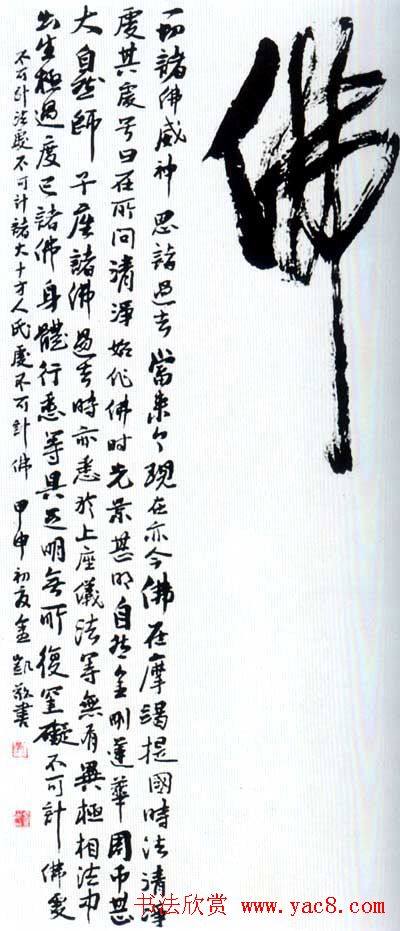 佛
一切諸佛威神恩諸過去當来今現在亦尒佛在摩竭提國時法清淨
處其處号曰在所問清淨始作佛時光景甚明自然金剛蓮華周帀甚
大自然師子座諸佛過去時亦悉於上座儀法等無有異極相法中
出生極過度已諸佛身體行悉等具足明無所復罣礙不可計佛處
不可計法處不可計諸大十方人民處不可計佛 甲申初夏金凱敬書
书法欣赏 www.yac8.com